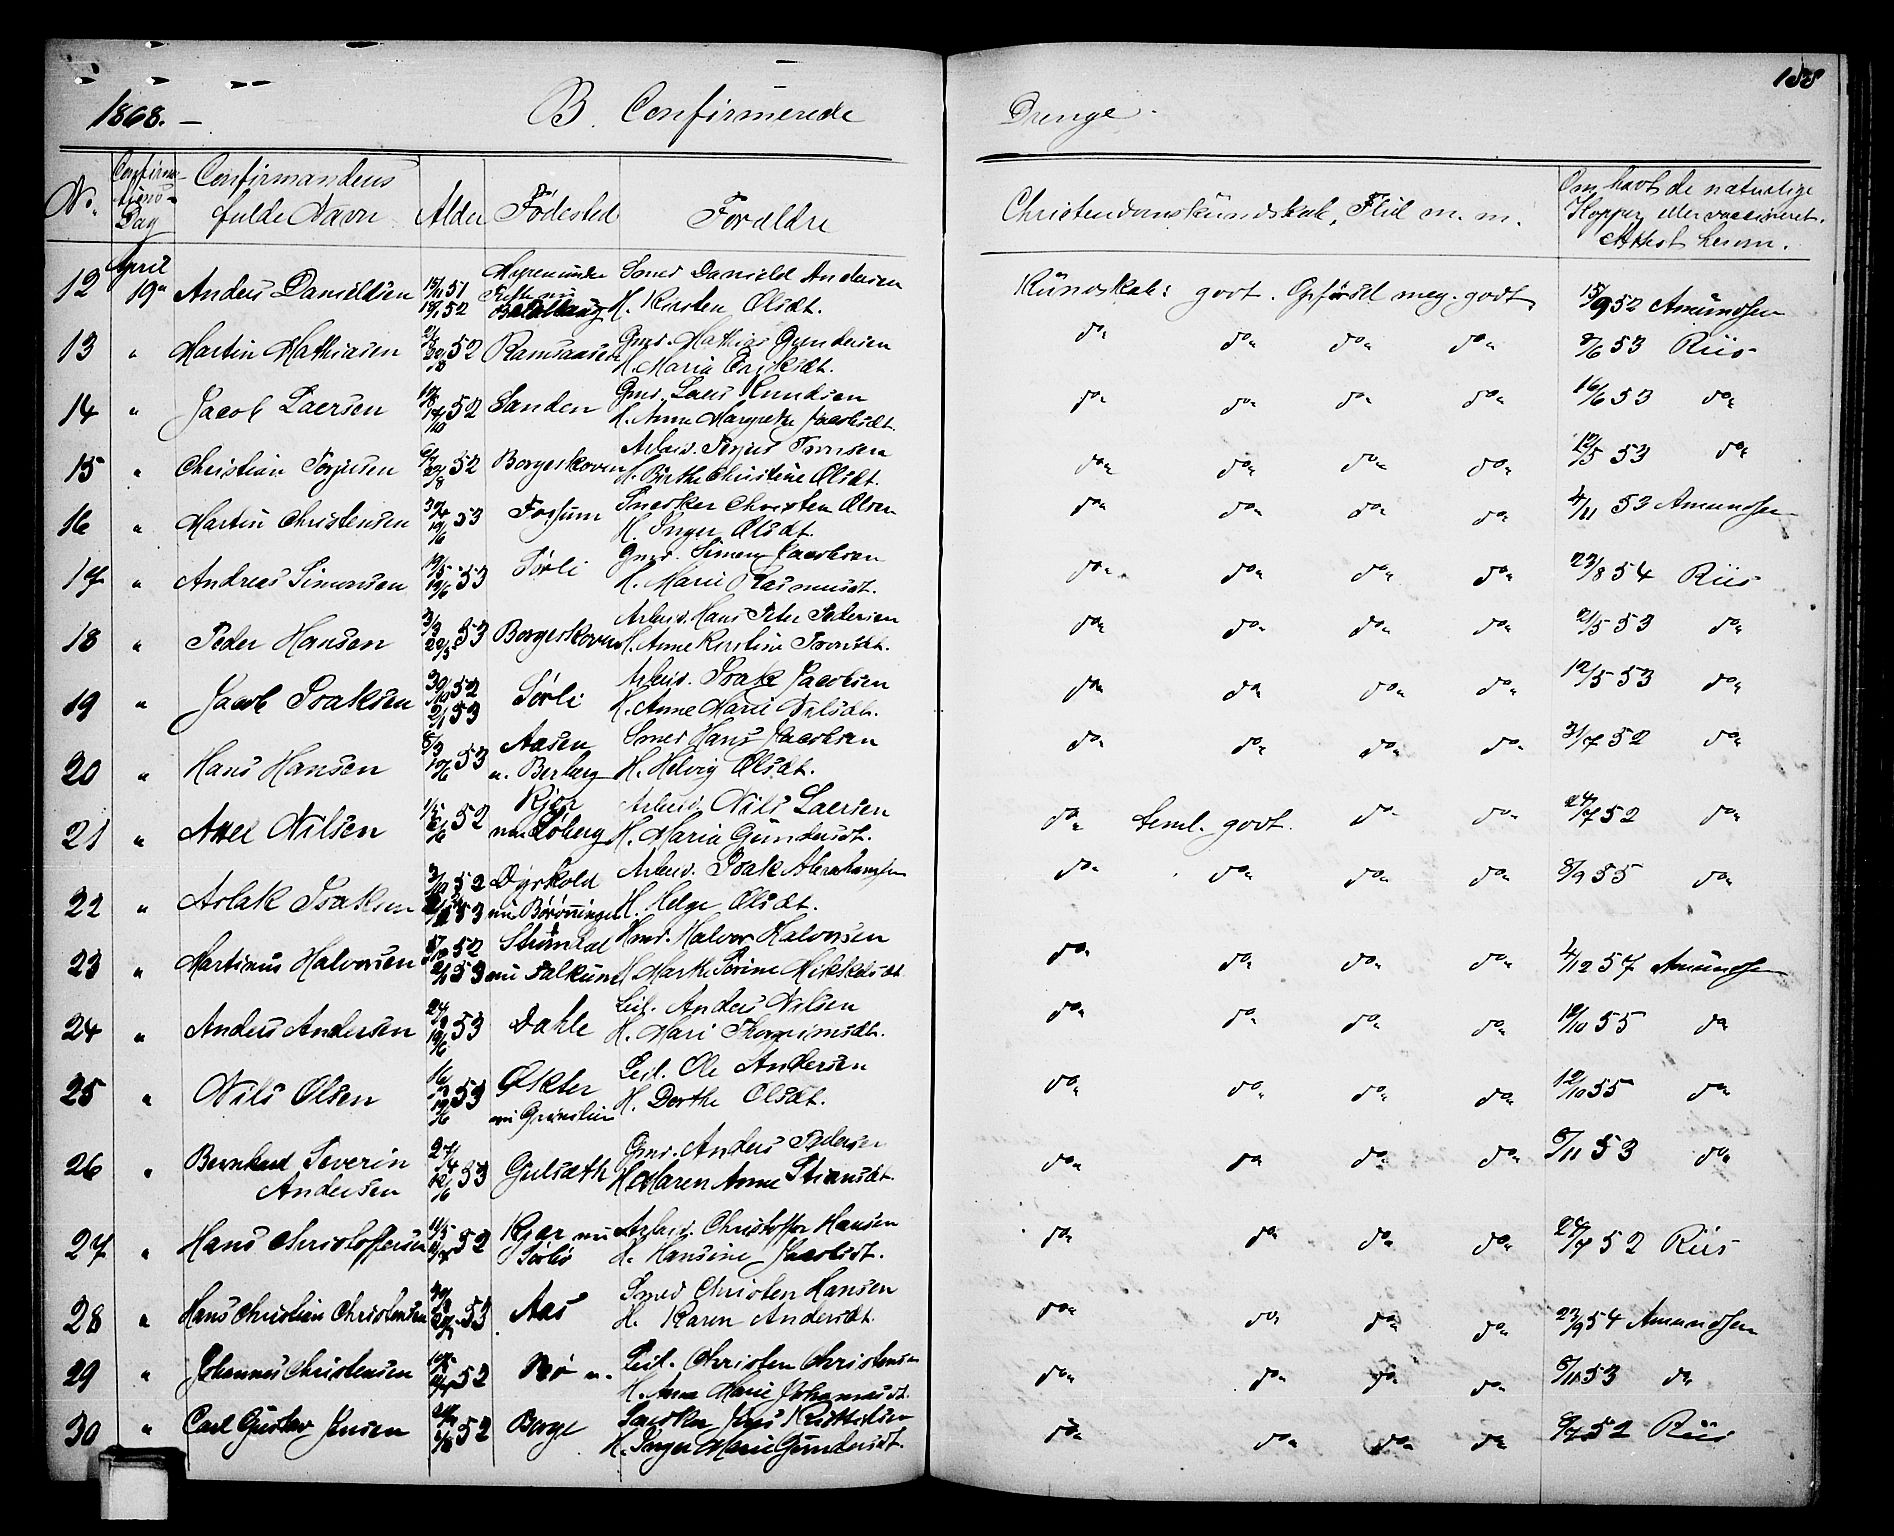 1868. —
B. Confirmerede
Drenge.
188
No.
Confirma-
tions-
Dag
Confirmandens
fulde Navn
Alder
Fødested
Forældre
Christendomskundskab, Flid m. m.
Om havt de naturlige
Kopper eller vaccineret.
Attest herom.
April
12 19de Anders Danielsen 15/11 51 18/1 52 Smed Danield Andersen
H. Kirsten Olsdt.
Kundskab: godt. Opførsel meg. godt 15/9 52 Amundsen
13 " Martin Mathiasen 52 Ramsaasen Gmd. Mathias Gundersen
H. Maria Eriksdt.
do do do do 8/6 53 Riis
14 " Jacob Laersen 52 Sanden Gmd. Laers Knudsen
H. Anne Margrethe Jacobsdt.
do do do do 16/6 53 do
15 " Christian Torjusen 52 Borgeskoven Arbeid. Torjus Tronsen
H. Birthe Christine Olsdt.
do do do do 12/5 53 do
16 " Martin Christensen 53 Fossum Snedker Christen Olsen
H. Inger Olsdt.
do do do do 4/11 53 Amundsen
17 " Andreas Simonsen 19/5 19/6 53 Sørli Gmd. Simon Jacobsen
H. Marie Rasmusdt.
do do do do 23/8 54 Riis
18 " Peder Hansen 53 Borgeskoven Arbeid. Hans Peter Pedersen
H. Anne Kirstine Tronsdt.
do do do do 21/5 53 do
19 " Jacob Isaksen 30/10 52 2/1 53 Sørli Arbeid. Isak Jacobsen
H. Anne Marie Nilsdt.
do do do do 12/5 53 do
20 " Hans Hansen 8/3 19/6 53 Aasen
n. Berberg Smed Hans Jacobsen
H. Helvig Olsdt.
do do do do 31/7 52 do
21 " Axel Nilsen 52 Kjør
nu Løberg Arbeid. Nils Laersen
H. Maria Gundersdt.
do Teml. godt. do do 24/7 52 do
22 " Aslak Isaksen 52 53 Dyrkold Arbeid. Isak Abrahamsen
H. Helge Olsdt.
do do do do 8/9 55 do
23 " Martinus Halvorsen 52 53 Strømdal
nu Falkum Hmd. Halvor Halvorsen
H. Marthe Sørine Mikkelsdt.
do do do do 4/12 57 Amundsen
24 " Anders Andersen 53 Dahle Leil. Anders Nilsen
H. Mari Thorgrimsdt.
do do do do 12/10 55 do
25 " Nils Olsen 53 Økter
nu Grønstein Leil. Ole Andersen
H. Dorthe Olsdt.
do do do do 12/10 55 do
26 " Bernhard Severin
Andersen 53 Gulsæth Gmd. Anders Pedersen
H. Maren Anne Stiansdt.
do do do do 8/11 53 do
27 " Hans Christoffersen 52 Kjær nu Arbeid. Christoffer Hansen
H. Hansine Jacobsdt.
do do do do 24/7 52 Riis
28 " Hans Christian Christensen 53 Aas Smed Christen Hansen
H. Karen Andersdt.
do do do do 23/9 54 Amundsen
29 " Johannes Christensen 52 Bø n. Leil. Christen Christensen
H. Anne Marie Johannesdt.
do do do do 8/11 53 do
30 " Carl Gustav Jensen 52 Borge Snedker Jens Kittilsen
H. Inger Marie Gundersdt.
do do do do 8/7 52 Riis